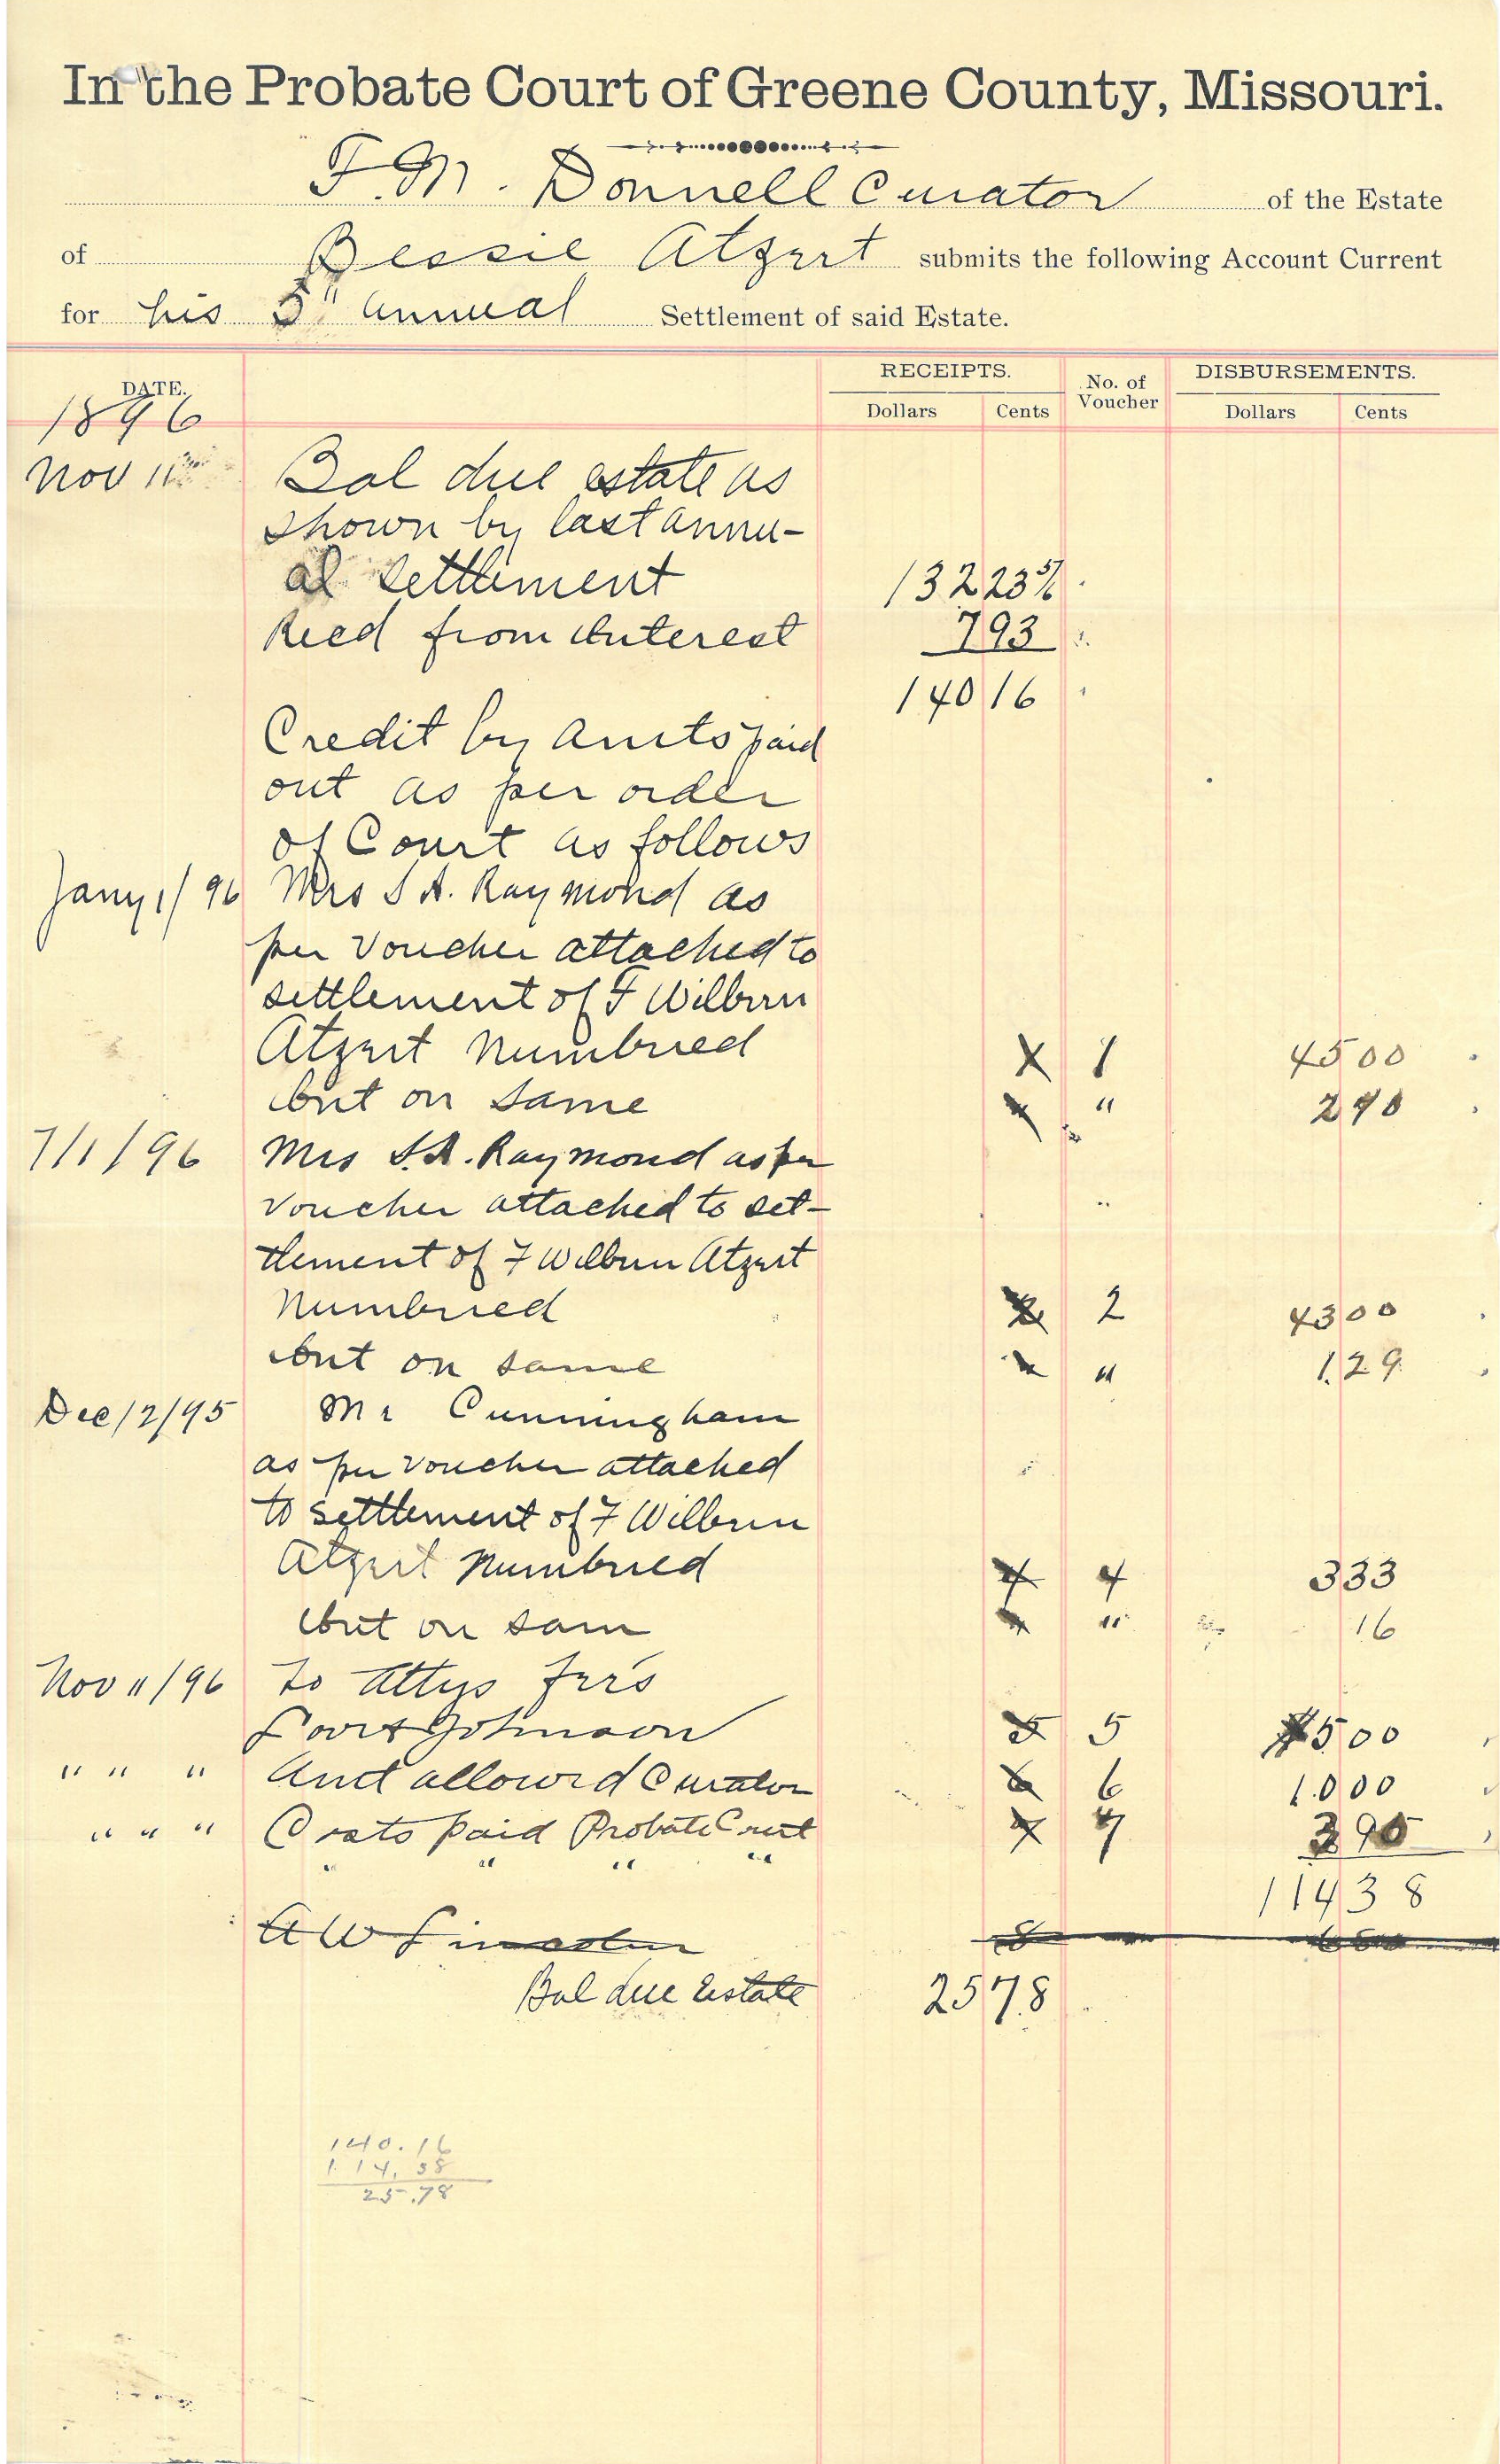 In the Probate Court of Greene County, Missouri.
F. M. Donnell Curator of the Estate
of Bessie Atzert submits the following Account Current
for his 5" annual Settlement of said Estate.
DATE. RECEIPTS. No. of Voucher DISBURSEMENTS.
Dollars Cents Dollars Cents
1896
Nov 11 Bal due estate as
shown by last annu-
al settlement 132 23
Recd from Interest 7 93
140 16
Credit by amts paid
out as per order
of Court as follows
Jany 1/96 Mrs S A. Raymond as
per voucher attached to
settlement of F Wilburn
Atzert Numbered X 1 45 00
Int on same " 2 70
7/1/96 Mrs S. A. Raymond as per
voucher attached to set-
tlement of F Wilburn Atzert
Numbered 2 43 00
Int on same " 1.29
Dec 12/95 Mr Cunningham
as per voucher attached
to settlement of F Wilburn
Atzert Numbered 4 4 3 33
Int on sam " 16
Nov 11/96 To Attys fees
& Johnson 5 5 5 00
" " " Amt allowed Curator 6 6 10 00
" " " Costs paid Probate Court 7 7 3 90
" " " "
114 38
A W Lincoln 8
Bal due Estate 25 78
140.16
114.38
25.78